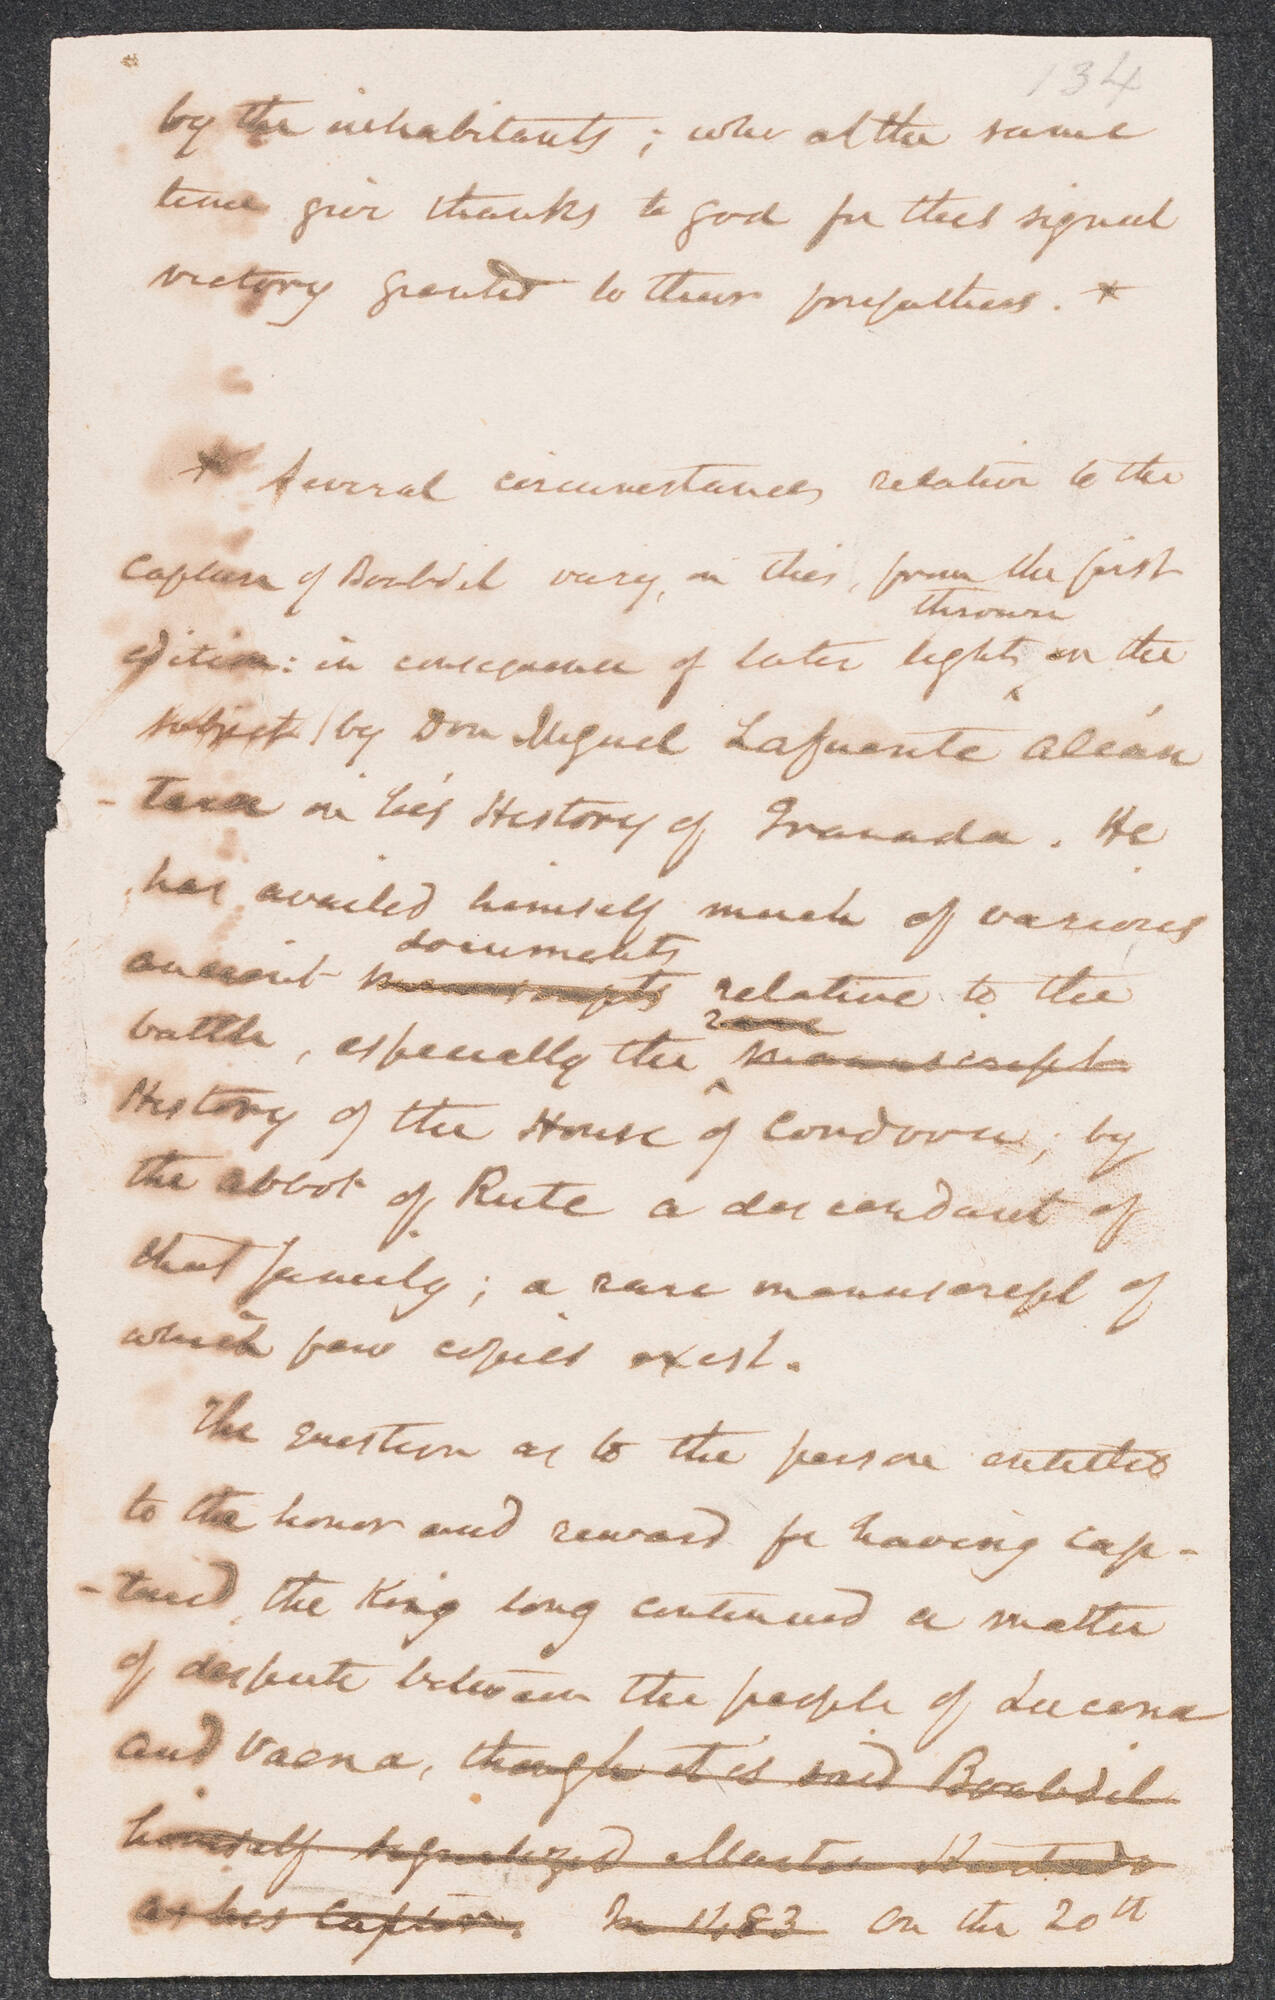 134
by the inhabitants; who at the same
time give thanks to god for this signal
victory granted to their forefathers. *
* Several circumstances relative to the
capture of Boabdil vary, in this, from the first
thrown
edition: in consequence of later lights on the
subject by Don Miguel Lafuente Alcán
-tara in his History of Granada. He
has availed himself much of various
documents
ancient manuscripts relative to the
rare
battle, especially the manuscript
History of the House of Cordova, by
the abbot of Rute a descendant of
that family; a rare manuscript of
which few copies exist.
The question as to the person entitled
to the honor and reward for having cap-
-tured the King long continued a matter
of dispute between the people of Lucena
and Vaena, though it is said Boabdil
himself signalized Martin Hurtado
as his captor. In 1483 On the 20th